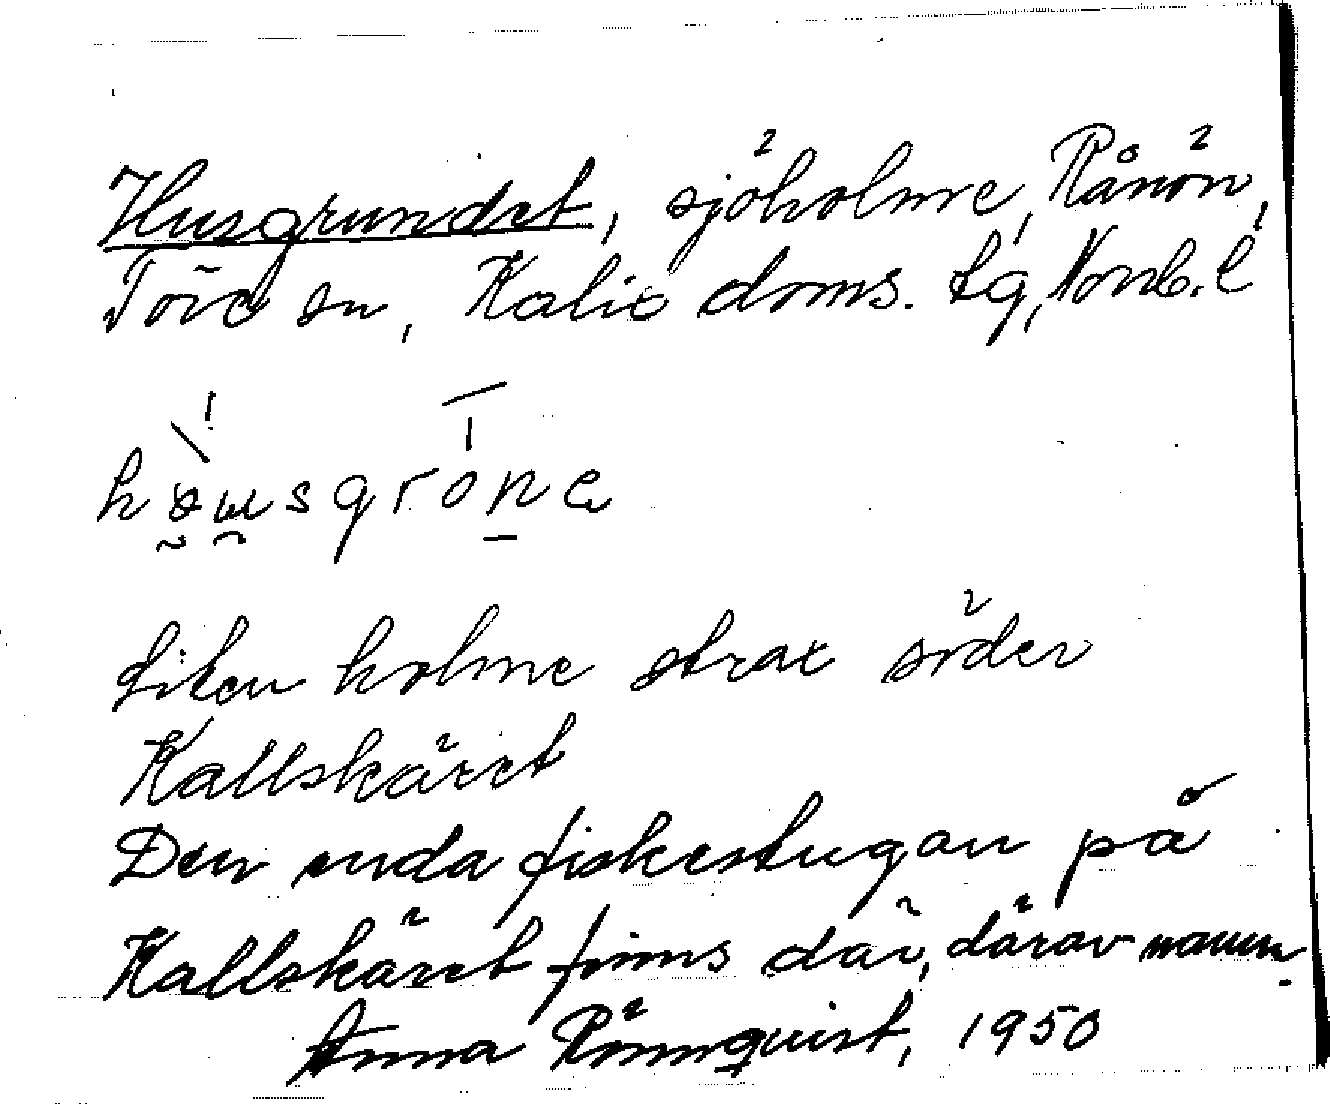 Husgrundet, sjöholme, Rånön,
Töre sn, Kalix doms. lg, Norrb. l
höusgrone
Liten holme strax söder
Kallskäret
Den enda fiskestugan på
Kallskäret finns där, därav namn.
Anna Rönnquist, 1950